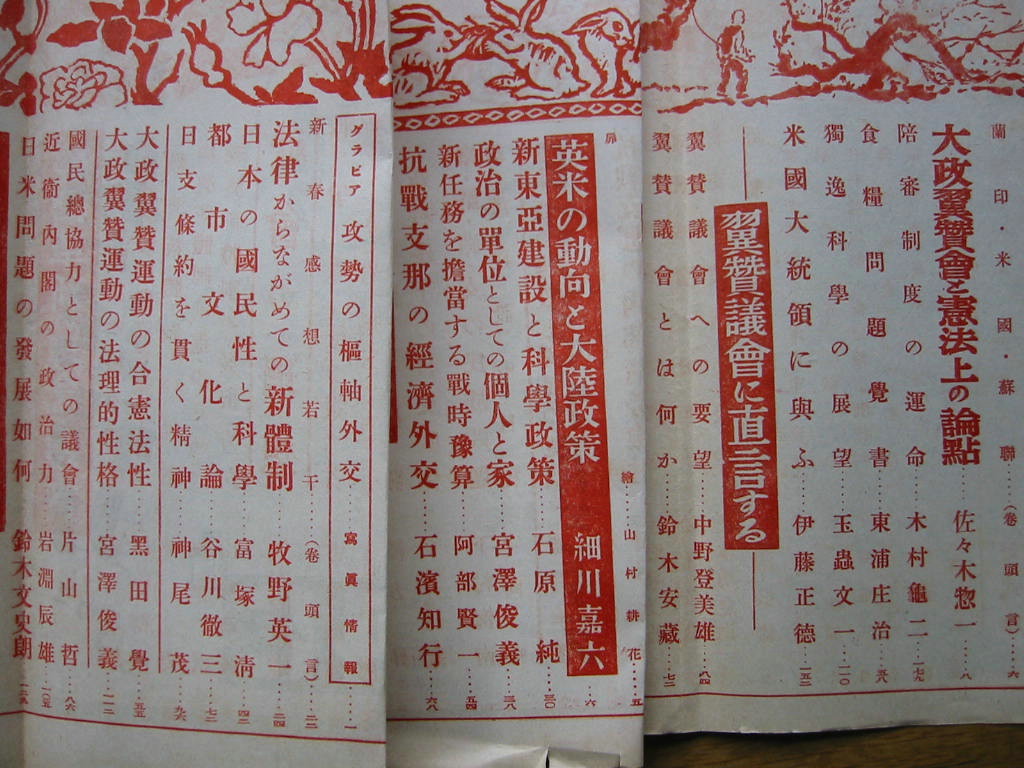 蘭印・米國・蘇聯……(卷頭言)…六
大政翼贊會と憲法上の論點……佐々木惣一…八
陪審制度の運命…木村龜二…一六七
食糧問題覺書…東浦庄治…
獨逸科學の展望…玉蟲文一…二一〇
米國大統領に與ふ…伊藤正德…一五二
翼贊議會に直言する
翼贊議會への要望…中野登美雄…八四
翼贊議會とは何か…鈴木安藏…七二
扉 繪 山村耕花……五
英米の動向と大陸政策 細川嘉六…六
新東亞建設と科學政策……石原純…三〇
政治の單位としての個人と家……宮澤俊義…三八
新任務を擔當する戰時豫算……阿部賢一…五四
抗戰支那の經濟外交……石濱知行…六八
グラビア 攻勢の樞軸外交 寫眞情報……一
新春感想若干……(卷頭言)…二二
法律からながめての新體制……牧野英一…二四
日本の國民性と科學……富塚淸…四二
都市文化論……谷川徹三…七二
日支條約を貫く精神……神尾茂…九六
大政翼贊運動の合憲法性……黑田覺…五五
大政翼贊運動の法理的性格……宮澤俊義…一二二
國民總協力としての議會……片山哲…八六
近衞內閣の政治力……岩淵辰雄…一〇五
日米問題の發展如何…鈴木文史朗…